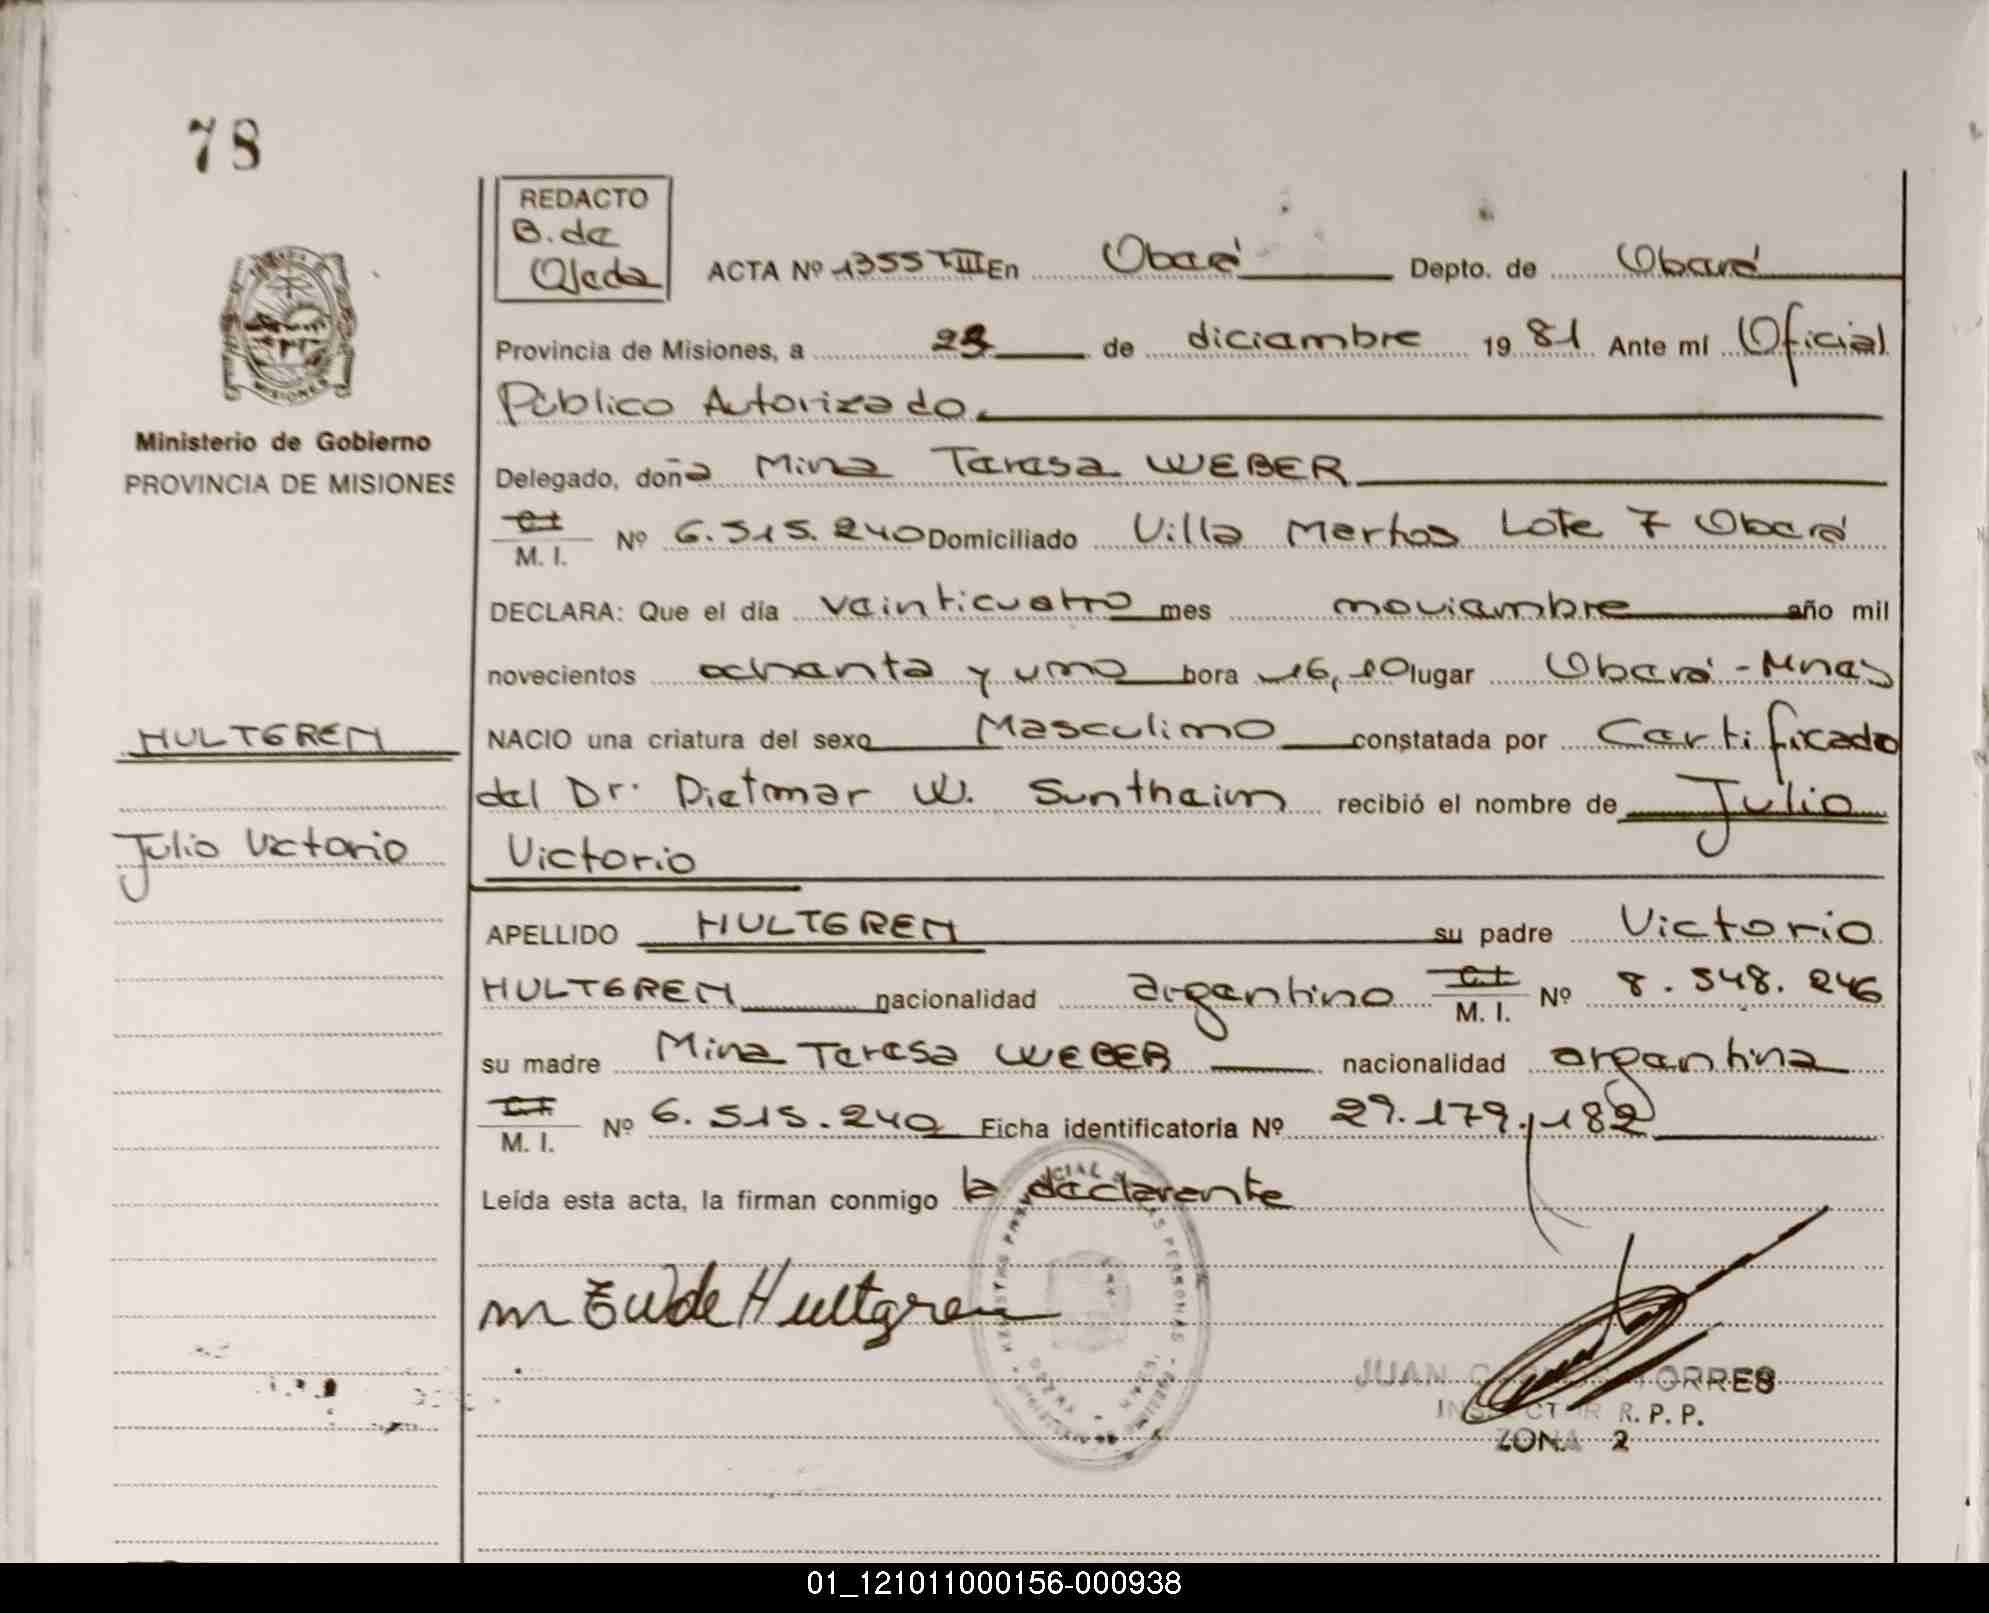 78
REDACTO
B. de
Ojeda
ACTA Nº 1355 TIII En Oberá Depto. de Oberá
Provincia de Misiones, a 23 de diciembre 19 81 Ante mí Oficial
Público Autorizado.
Ministerio de Gobierno
PROVINCIA DE MISIONES
Delegado, doña Mina Teresa WEBER
C.I.
M. I. Nº 6.515.240 Domiciliado Villa Martos Lote 7 Oberá
DECLARA: Que el día veinticuatro mes noviembre año mil
novecientos ochenta y uno hora 16,10 lugar Oberá - Mnes
HULTGREN
NACIO una criatura del sexo Masculino constatada por Certificado
del Dr. Dietmar W. Suntheim recibió el nombre de Julio
Julio Victorio
Victorio
APELLIDO HULTGREN su padre Victorio
HULTGREN nacionalidad argentino C.I. M. I. Nº 8.548.246
su madre Mina Teresa WEBER nacionalidad argentina
C.I.
M. I. Nº 6.515.240 Ficha identificatoria Nº 29.179.182
Leída esta acta, la firman conmigo la declarente
M T W de Hultgren
JUAN TORRES
INSPECTOR R. P. P.
ZONA 2
01_121011000156-000938